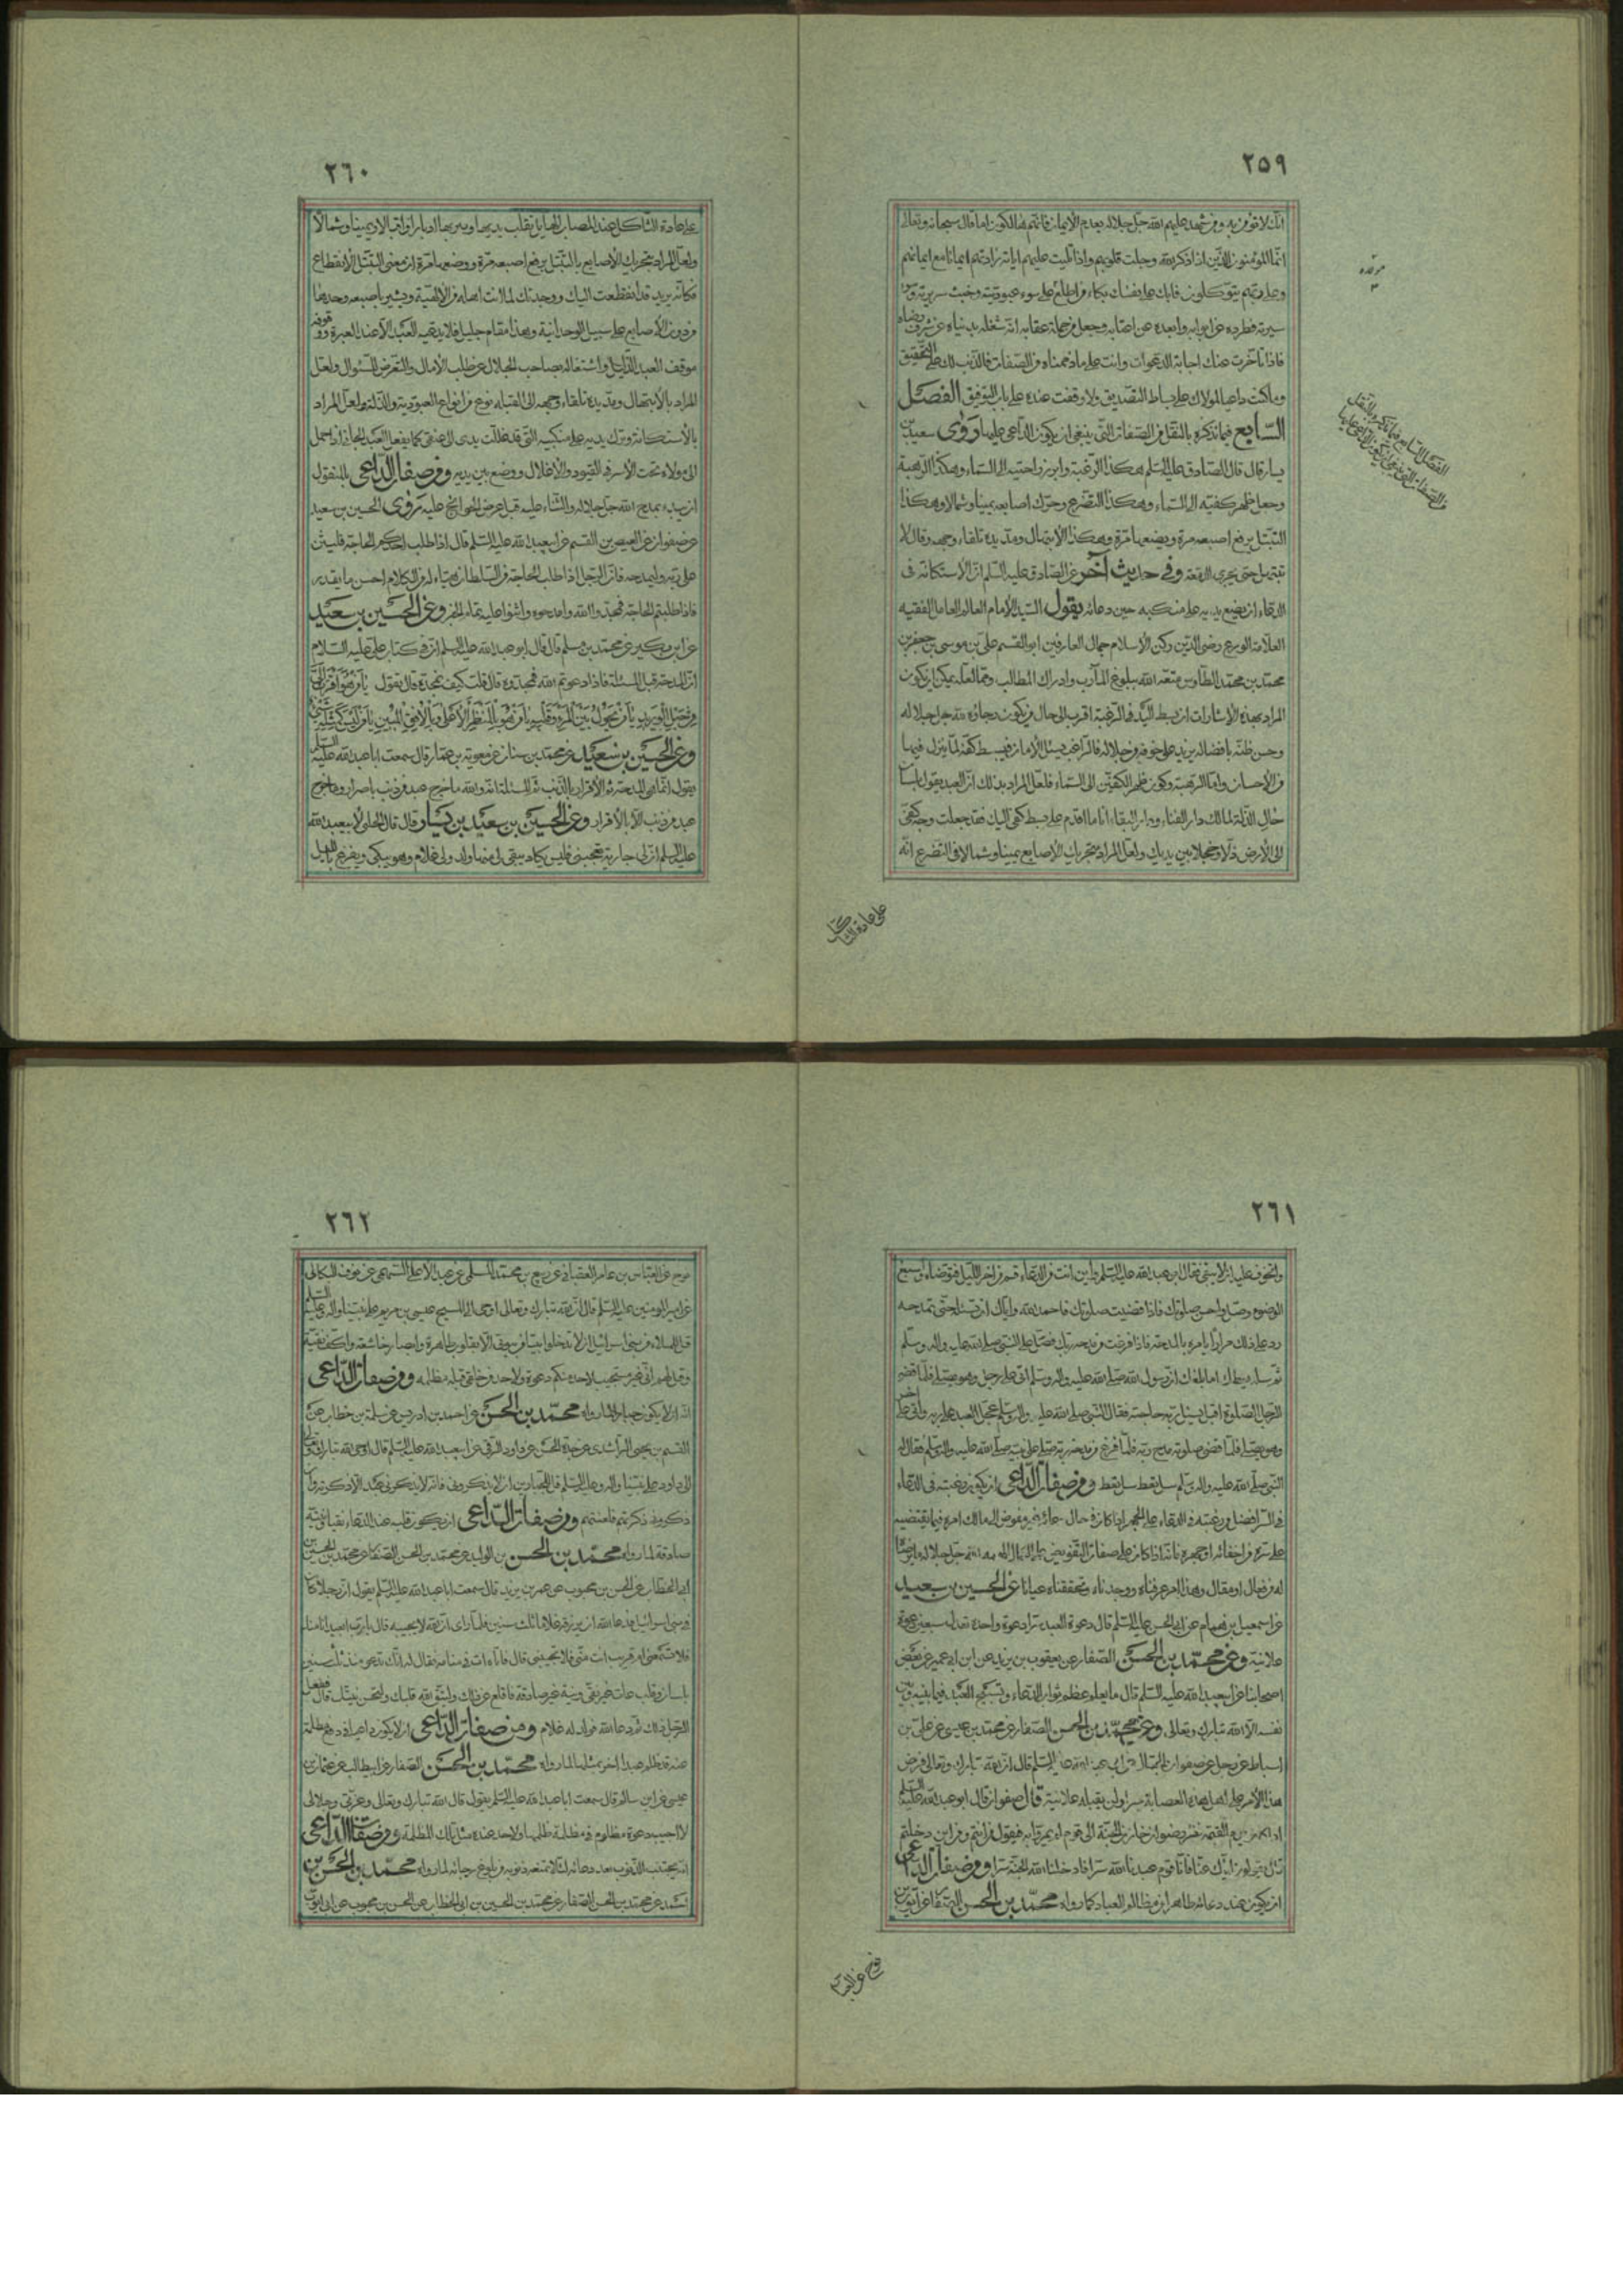 ٢٥٩
انك لا تؤمن به ومن شهد عليهم الله جل جلاله بعدم الايمان فانهم هالكون اما قال سبحانه وتعالى
انما المؤمنون الذين اذا ذكر الله وجلت قلوبهم واذا تليت عليهم اياته زادتهم ايمانا مع ايمانهم
وعلى ربهم يتوكلون فابك على نفسك بكاء من اطلع على سوء عبوديته وخبث سريرته
سيرته فطرده عن ابوابه وابعده عن اعتابه وجعل من جملة عقابه انه شغله بدنياه عن شرف رضاه
فاذا تأخرت عنك اجابة الدعوات وانت على ما ذممناه من الصفات فالذنب لك على التحقيق
وما كنت داعيا لمولاك على بساط التصديق ولا وقفت عنده على باب التوفيق الفصل
السابع فيما نذكره بالنقل من الصفات التي ينبغي ان يكون الداعي عليها روى سعيد بن
يسار قال قال الصادق عليه السلم هكذا الرغبة وابرز راحتيه الى السماء وهكذا الرهبة
وجعل ظهر كفيه الى السماء وهكذا التضرع وحرك اصابعه يمينا وشمالا وهكذا
التبتل يرفع اصبعه مرة ويضعها مرة وهكذا الابتهال ومد يديه تلقاء وجهه وقال لا
تبتهل حتى يجري الدمعة وفي حديث آخر عن الصادق عليه السلم ان الاستكانة في
الدعاء ان يضع يديه على منكبيه حين دعائه يقول السيد الامام العالم العامل الفقيه
العلامة الورع رضى الدين ركن الاسلام جمال العارفين ابو القسم على بن موسى بن جعفر بن
محمد بن محمد الطاوس متعه الله ببلوغ المآرب وادراك المطالب ومما لعله يمكن ان يكون
المراد بهذه الاشارات ان بسط اليد في الرغبة اقرب الى حال من يكون رجاؤه لله جل جلاله
وحسن ظنه بافضاله يزيد على خوفه من جلاله فالراغب يسئل الامان فيبسط كفه لما ينزل فيها
من الاحسان واما الرهبة وكون ظهر الكفين الى السماء فلعل المراد بذلك ان العبد يقول بلسان
حال الذلة لمالك دار الفناء ودار البقاء انا ما اقدم على بسط كفى اليك فقد جعلت وجه كفى
الى الارض ذلا وخجلا بين يديك ولعل المراد بتحريك الاصابع يمينا وشمالا في التضرع انه
على عادة الثاكل
الفصل السابع فيما نذكره بالنقل
من الصفات التي ينبغي ان يكون الداعي عليها
٢٦٠
على عادة الثاكل عند المصاب الهايل تقلب يديها وتنوح بها ادبارا واقبالا ويمينا وشمالا
ولعل المراد بتحريك الاصابع بالتبتل يرفع اصبعه مرة ووضعها مرة ان معنى التبتل الانقطاع
فكانه يريد قد انقطعت اليك ووجدتك لما انت اهله من الالهية ويشير باصبعه وحدها
من دون الاصابع على سبيل الوحدانية وهذا مقام جليل فلا يدعيه العبد الا عند العبرة ووقوفه
موقف العبد الذليل واشتغاله بصاحب الجلال عن طلب الامال والتعرض للسئوال ولعل
المراد بالابتهال ومد يديه تلقاء وجهه الى القبلة نوع من انواع العبودية والذلة ولعل المراد
بالاستكانة وترك يديه على منكبيه انني قد غللت يدى الى عنقى كما يفعل العبد الجاني اذا حمل
الى مولاه تحت الاسر في القيود والاغلال ووضع بين يديه ومن صفات الداعى بالمنقول
ان يبدء بمدح الله جل جلاله والثناء عليه قبل عرض الحوائج عليه روى الحسين بن سعيد
عن صفوان عن العيص بن القسم عن ابيعبد الله عليه السلم قال اذا طلب احدكم الحاجة فليثن
على ربه وليمدحه فان الرجل اذا طلب الحاجة من السلطان هيأ له من الكلام احسن ما يقدر
فاذا طلبتم الحاجة فمجدوا الله وامدحوه واثنوا عليه تمام الخبر وعن الحسين بن سعيد
عن ابن بكير عن محمد بن مسلم قال قال ابو عبد الله عليه السلم ان في كتاب علي عليه السلام
ان المدحة قبل المسئلة فاذا دعوتم الله فمجدوه قال قلت كيف نمجده قال تقول يا من هو اقرب الى
من حبل الوريد يا من يحول بين المرء وقلبه يا من هو بالمنظر الاعلى وبالافق المبين يا من ليس كمثله شئ
وعن الحسين بن سعيد عن محمد بن سنان عن معوية بن عمار قال سمعت ابا عبد الله عليه السلم
يقول انما هي المدحة ثم الاقرار بالذنب ثم المسئلة انه والله ما خرج عبد من ذنب باصرار وما خرج
عبد من ذنب الا بالاقرار وعن الحسين بن سعيد بن يسار قال قال الحلبى لابيعبد الله
عليه السلم ان لى جارية تعجبنى فليس يكاد يبقى لى منها ولد ولى غلام وهو يبكى ويفزع بالليل
٢٦١
واتخوف عليه ان لا يبقى فقال ابو عبد الله عليه السلم واين انت من الدعاء قم من اخر الليل فتوضأ واسبغ
الوضوء وصل واحسن صلوتك فاذا قضيت صلوتك فاحمد الله واياك ان تسئله حتى تمدحه
ردد على ذلك مرارا يامره بالمدحة فاذا فرغت من مدحة ربك فصل على النبى صلى الله عليه واله وسلم
ثم سله يعطك اما بلغك ان رسول الله صلى الله عليه واله وسلم اتى على رجل وهو يصلى فلما قضى
الرجل الصلوة اقبل يسئل ربه حاجته فقال النبى صلى الله عليه واله وسلم عجل العبد على ربه واتى على اخر
وهو يصلى فلما قضى صلوته مدح ربه فلما فرغ من مدحة ربه صلى على نبيه صلى الله عليه واله وسلم فقال له
النبى صلى الله عليه واله وسلم سل تعط سل تعط ومن صفات الداعى ان يكون رغبته في الدعاء
في السر افضل من رغبته في الدعاء على الجهر اذا كان في حال دعائه غير مفوض الى مالك امره فيما يقتضيه
على سره من اخفائه او جهره فانه اذا كان على صفات التفويض
له من فعال او مقال وهذا امر عرفناه ووجدناه وتحققناه عيانا عن الحسين بن سعيد
عن اسمعيل بن همام عن ابى الحسن عليه السلم قال دعوة العبد سرا دعوة واحدة تعدل سبعين دعوة
علانية وعن محمد بن الحسن الصفار عن يعقوب بن يزيد عن ابن ابى عمير عن بعض
اصحابنا عن ابيعبد الله عليه السلم قال ما يعلم عظم ثواب الدعاء وتسبيح العبد فيما بينه وبين
نفسه الا الله تبارك وتعالى وعن محمد بن الحسن الصفار عن محمد بن عيسى عن على بن
اسباط عن رجل عن صفوان الجمال عن ابى عبد الله عليه السلم قال ان الله تبارك وتعالى فرض
هذا الامر على اهل هذه العصابة سرا ولن يقبله علانية قال صفوان قال ابو عبد الله عليه السلم
اذا كان يوم القيمة نظر رضوان خازن الجنة الى قوم لم يمروا به فيقول من انتم ومن اين دخلتم
قال يقولون اياك عنا فانا قوم عبدنا الله سرا فادخلنا الله الجنة سرا ومن صفات الداعى
ان يكون عند دعائه طاهرا من مظالم العباد كما رواه محمد بن الحسن الصفار عن ايوب بن
نوح عن العباس
٢٦٢
نوح عن العباس بن عامر العقبانى عن ربيع بن محمد المسلمى عن عبد الاعلى السهمى عن نوف البكالى
عن امير المؤمنين عليه السلم قال ان الله تبارك وتعالى اوحى الى المسيح عيسى بن مريم على نبينا واله وعليه السلم
قل للملاء من بنى اسرائيل ان لا يدخلوا بيتا من بيوتى الا بقلوب طاهرة وابصار خاشعة واكف نقية
وقل لهم انى غير مستجيب لاحد منكم دعوة ولاحد من خلقى قبله مظلمة ومن صفات الداعى
انه ان لا يكون جبارا لما رواه محمد بن الحسن عن احمد بن ادريس عن سلمة بن خطاب عن
القسم بن يحيى الراشدى عن جده الحسن عن داود الرقى عن ابيعبد الله عليه السلم قال اوحى الله تبارك وتعالى
الى داود على نبينا واله وعليه السلم قل للجبارين ان لا يذكرونى فانه لا يذكرنى عبد الا ذكرته وان
ذكرونى ذكرتهم فلعنتهم ومن صفات الداعى ان يكون قلبه عند الدعاء نقيا ونيته
صادقة لما رواه محمد بن الحسن بن الوليد عن محمد بن الحسن الصفار عن محمد بن الحسين بن
ابى الخطاب عن الحسن بن محبوب عن عمر بن يزيد قال سمعت ابا عبد الله عليه السلم يقول ان رجلا كان
في بنى اسرائيل فدعا الله ان يرزقه غلاما ثلث سنين فلما راى ان الله لا يجيبه قال يا رب ابعيد انا منك
فلا تسمعنى ام قريب انت منى فلا تجيبنى قال فاتاه ات في منامه فقال له انك تدعو منذ ثلث سنين
بلسان وقلب عات غير نقى ونية غير صادقة فاقلع عن ذلك وليتق الله قلبك ولتحسن نيتك قال ففعل
الرجل ذلك ثم دعا الله فولد له غلام ومن صفات الداعى ان لا يكون داعيا في دفع مظلمة
عنه قد ظلم عبدا اخر بمثلها لما رواه محمد بن الحسن الصفار عن ابى طالب عن عثمان بن
عيسى عن ابن سالم قال سمعت ابا عبد الله عليه السلم يقول قال الله تبارك وتعالى وعزتى وجلالى
لا اجيب دعوة مظلوم في مظلمة ظلمها ولاحد عنده مثل تلك المظلمة ومن صفات الداعى
انه يجتنب الذنوب بعد دعائه لئلا تمنعه ذنوبه من بلوغ رجائه لما رواه محمد بن الحسن بن
احمد عن محمد بن الحسن الصفار عن محمد بن الحسين بن ابى الخطاب عن الحسن بن محبوب عن ابى ايوب